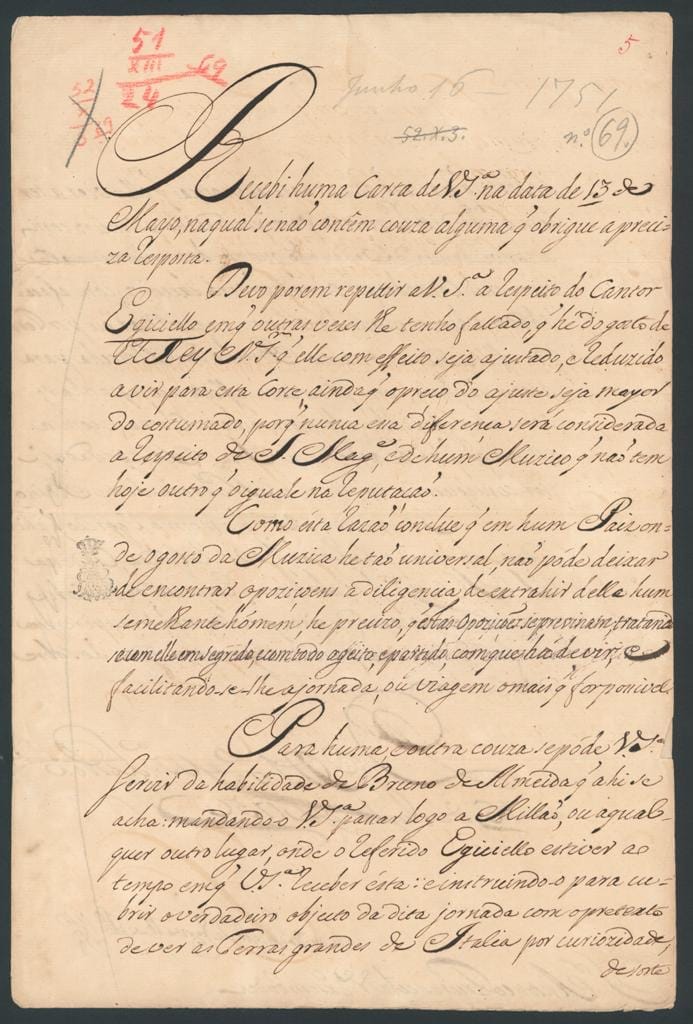 51
XIII 69
24
52
X
69
5
Junho 16 1751
52.X.3.
nº. 69.
Recebi huma Carta de V. S.ª na data de 13 de
Mayo, na qual se naõ contêm couza alguma q̃ obrigue a preci=
za resposta.
Devo porem repettir a V. S.ª a respeito do Cantor
Egiciello em q̃ outras vezes lhe tenho fallado, q̃ he do gosto de
ElRey N. S.r q̃ elle com effeito seja ajustado, e reduzido
a vir para esta Corte, ainda q̃ o preco do ajuste seja mayor
do costumado, porq̃ nunca essa diferença será considerada
a respeito de S. Mag.e, e de hum Muzico q̃ naõ tem
hoje outro q̃ o iguale na reputacaõ.
Como esta razaõ conclue q̃ em hum Paiz on-
de o gosto da Muzica he taõ universal, naõ póde deixar
de encontrar opoziçoens a diligencia de extrahir delle hum
semelhante hómem, he precizo, q̃ estas opoziçoẽs se previnam, tratando
se com elle em segredo, e com todo a geito, e partido, com que há de vir, e
facilitando-se-lhe a jornada, ou viagem o mais q̃ for possivel.
Para huma, e outra couza se póde V. S.ª
servir da habilidade de Bruno de Almeida q̃ ahi se
acha: mandando-o V. S.ª passar logo a Millaõ, ou a qual-
quer outro lugar, onde o referido Egiciello estiver ao
tempo em q̃ V. S.ª receber esta: e instruindo-o para cu-
brir o verdadeiro objecto da dita jornada com o pretexto
de ver as Terras grandes de Italia por curiozidade,
de sorte